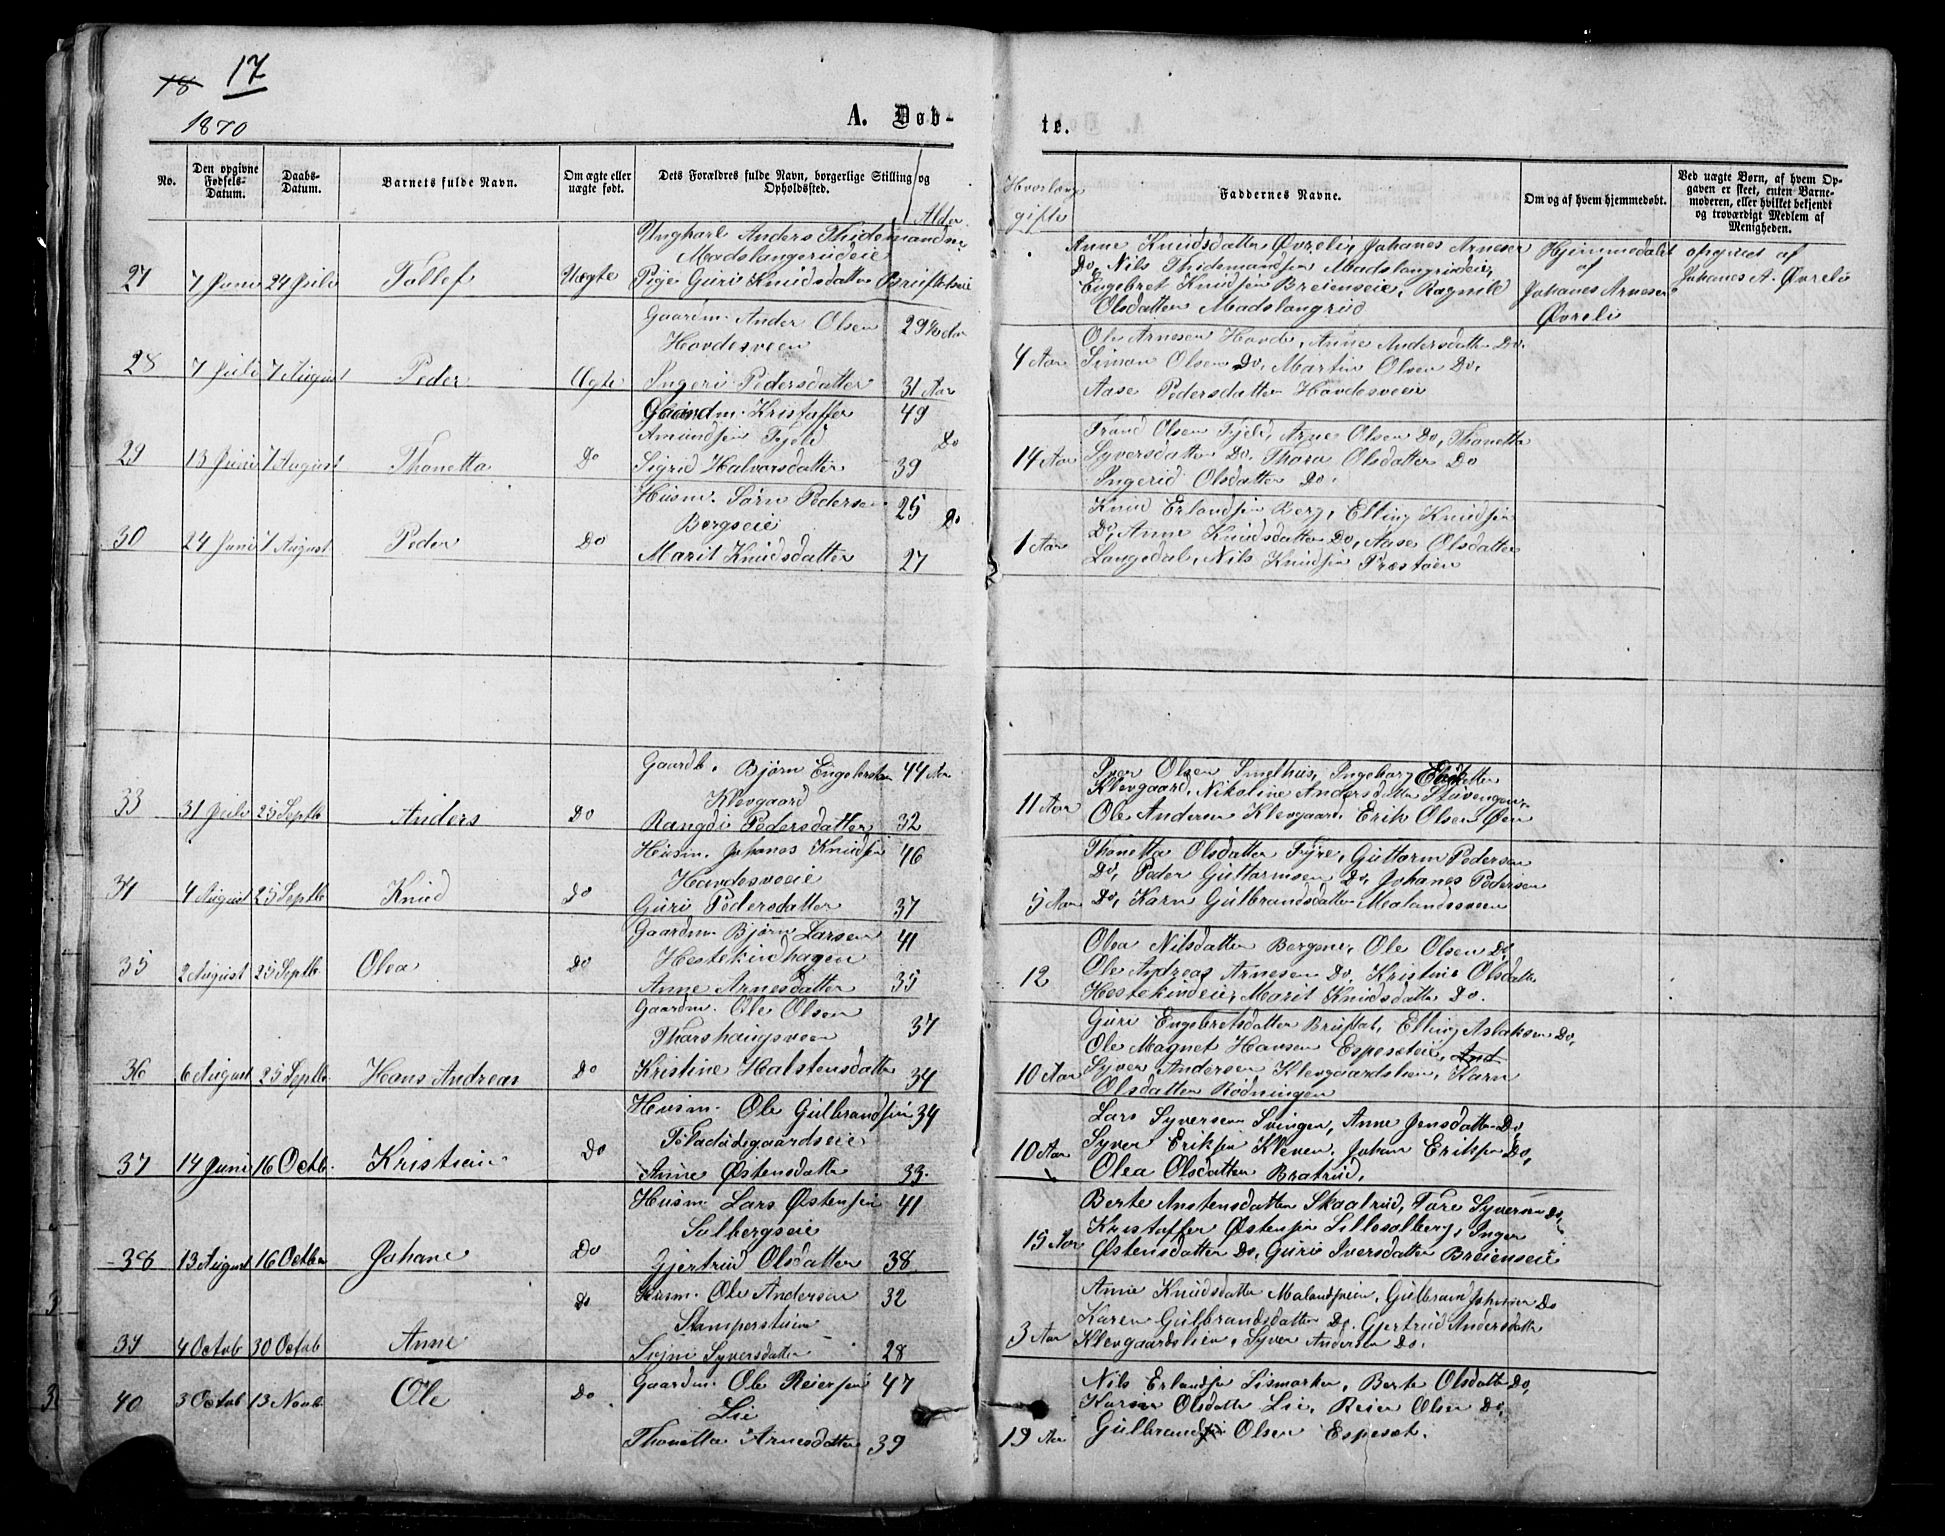 18 17
1870
A. Døb-
te.
No.
Den opgivne Fødsels-Datum.
Daabs-Datum.
Barnets fulde Navn.
Om ægte eller uægte født.
Dets Forældres fulde Navn, borgerlige Stilling og Opholdssted.
Alder
Hvorlænge gifte
Faddernes Navne.
Om og af hvem hjemmedøbt.
Ved uægte Børn, af hvem Op-
gaven er skeet, enten Barne-
moderen, eller hvilket bekjendt
og troværdigt Medlem af
Menigheden.
Ungkarl Anders Thidemandsen
Madslangrudeie
27 7 Juni 24 Juli Tollef Uægte Pige Guri Knudsdatter
Anne Knudsdatter Øvreli, Johanes Arnesen
Do, Nils Thidemandsen Madslangrudeie,
Engebret Knudsen Breienseie, Ragnild
Olsdatter Madslangrud
Hjemmedøbt
af
Johanes Arnesen
Øvreli
opgivet af
Johanes A. Øvreli
Gaardm. Ander Olsen 29½ Aar
Hovdesveen
28 7 Juli 7 August Peder Ægte Ingeri Pedersdatter 31 Aar
4 Aar
Ole Arnesen Hovde, Anne Andersdatter Do.
Simon Olsen Do, Martin Olsen Do,
Aase Pedersdatter Hovdesveen
Gaardm. Kristoffer 49
Amundsen Fjeld Do
29 13 Juni 7 August Thonetta Do Sigrid Halvorsdatter 39
14 Aar
Trond Olsen Fjeld, Arne Olsen Do, Thonetta
Syversdatter Do, Thora Olsdatter Do
Ingerid Olsdatter Do.
Husm. Sørn Pedersen 25
Bergseie Do
30 24 Juni 7 August Peder Do Marit Knudsdatter 27
1 Aar
Knud Erlandsen Berg, Elling Knudsen
Do, Anne Knudsdatter Do, Aase Olsdatter
Langedal, Nils Knudsen Præstøen
Gaardb. Bjørn Engebretsen 44 Aar
Klevgaard
33 31 Juli 25 Septb Anders Do Rangdi Pedersdatter 32
11 Aar
Iver Olsen Smethus, Ingeborg
Klevgaard, Nikoline Andersdatter Stavengen,
Ole Andersen Klevgaard, Erik Olsen Øen
Husm. Johanes Knudsen 46
Hovdesveeie
34 4 August 25 Septb Knud Do Guri Pedersdatter 37
5 Aar
Thonetta Olsdatter Fyre, Guttorm Pedersen
Do, Peder Guttormsen Do, Johanes Pedersen
Do, Karn Gulbrandsdatter Molandsveen
Gaardm. Bjørn Larsen 41
Hestekindhagen
35 2 August 25 Septb. Olea Do Anne Arnesdatter 35
12
Olea Nilsdatter Bergsne, Ole Olsen Do,
Ole Andreas Arnesen Do, Kristine Olsdatter
Hestekindeie, Marit Knudsdatter Do.
Gaardm. Ole Olsen 37
Thorshaugsveen
36 6 August 25 Septb. Hans Andreas Do Kristine Halstensdatter 34
10 Aar
Guri Engebretsdatter Bruflat, Elling Aslaksen Do,
Ole Magnet Hansen Espeseteie, And
Syver Andersen Klevgaardslien, Karn
Olsdatter Rødningen
Husm. Ole Gulbrandsen 34
37 14 Juni 16 Octb. Kristian Do Anne Østensdatter 33.
10 Aar
Lars Syversen Svingen, Anne Jensdatter Do,
Syver Eriksen Kleven, Johan Eriksen Do,
Olea Olsdatter Bratrud.
Husm. Lars Østensen 41
Solbergseie
38 13 August 16 Octber Johane Do Gjertrud Olsdatter 38
15 Aar
Berte Anstensdatter Skaalrud, Tore Syversen Do,
Kristoffer Østensen Lillesolberg, Inger
Østensdatter Do, Guri Iversdatter Breienseie
Husm. Ole Andersen 32
39 4 Octob 30 Octob Anne Do Syversdatter 28
3 Aar
Anne Knudsdatter Gulbrand Johnsen Do
Karen Gulbrandsdatter Do. Gjertrud Andersdatter
Klevgaardslien, Syver Andersen Do.
Gaardm. Ole Reiersen 47
Lie
40 3 Octob 13 Novb. Ole Do Thonetta Arnesdatter 39
19 Aar
Nils Erlandsen Lismarken, Berte Olsdatter Do,
Karin Olsdatter Lie, Reier Olsen Do,
Gulbrand Olsen Espeset.